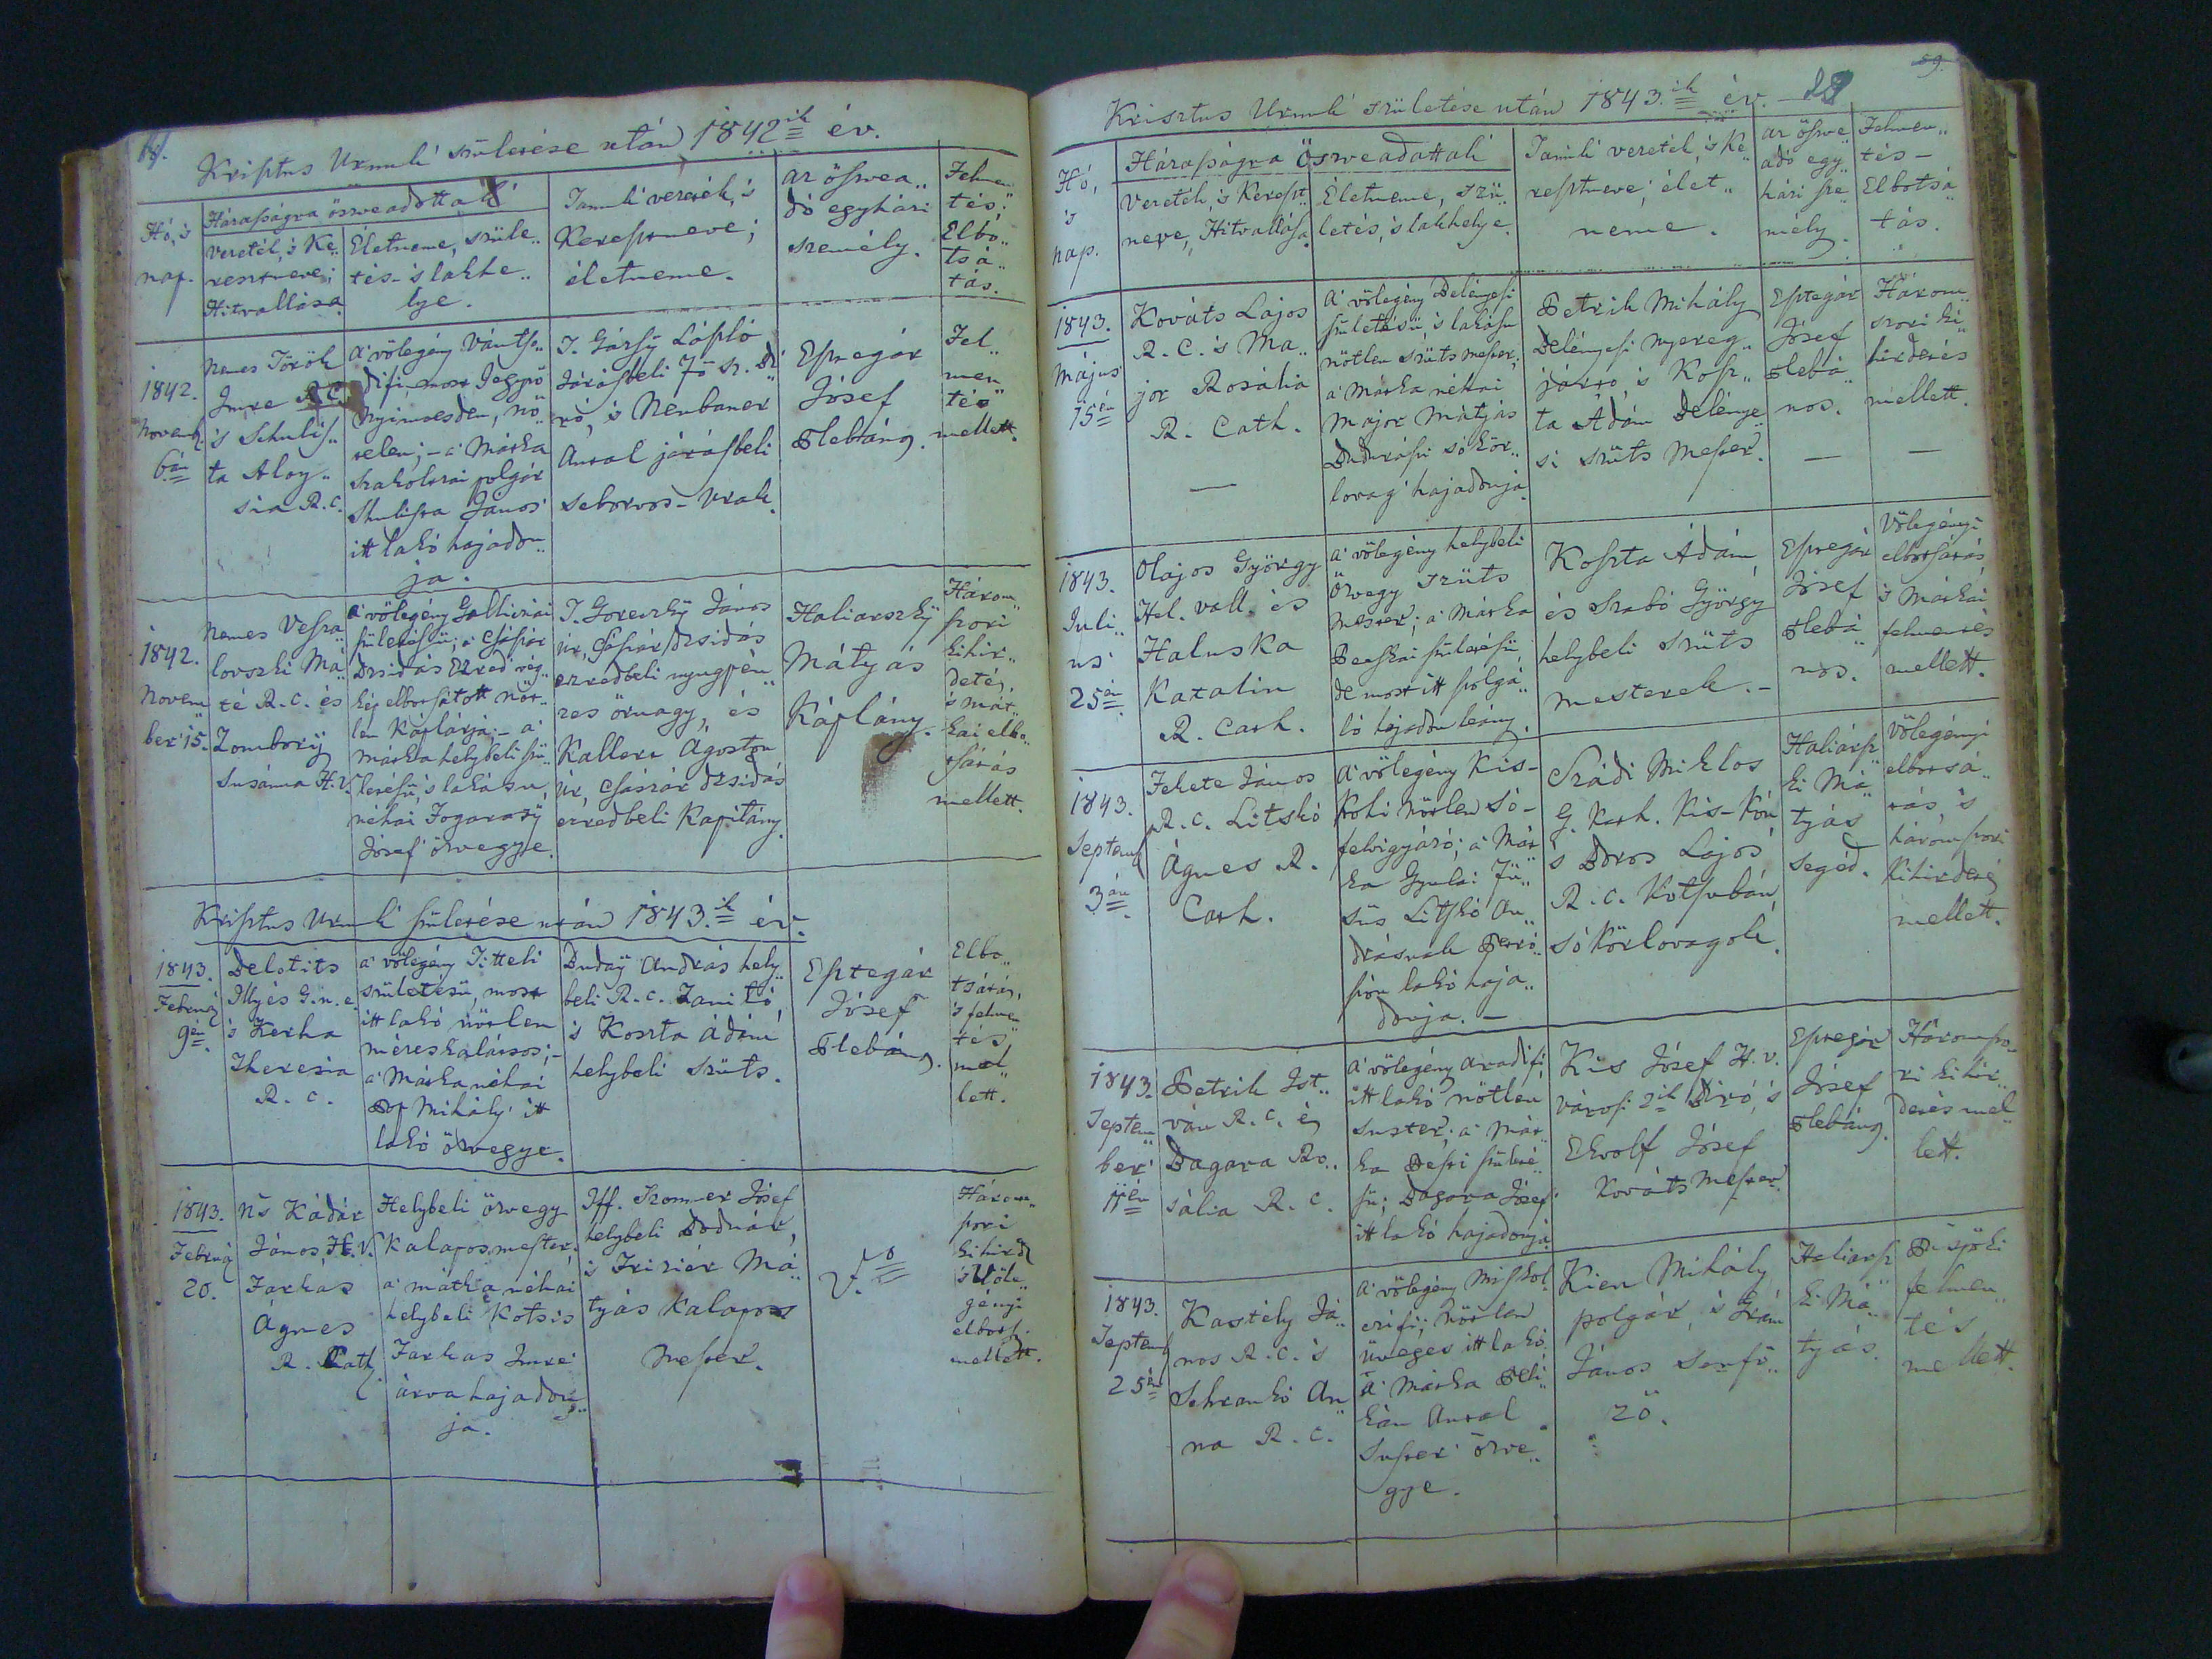 Kristus Urunk' születése után 1842ik év.
Hó, 's
nap.
Házasságra öszveadottak'
Vezeték, 's Ke„
resztneve;
Hitvallása.
Életneme, szüle„
tés- 's lakhe„
lye.
Tanuk' vezeték, 's
Keresztneve;
életneme.
az öszvea„
dó egyházi
személy.
Felmen
tés,
Elbo„
tsá„
tás.
1842.
Novemb.
6án
Nemes Török
Imre R.C.
's Schulis„
ta Aloy„
sia R.C.
nyimesden, nö„
telen; - a' Mátka
szakolczai polgár
János'
itt lakó hajadon„
ja.
László
Járásbeli Fő
ró, 's Neubauer
Antal járásbeli
seborvos - Urak.
Esztegár
József
Plébános.
Fel„
men„
tés
mellett.
1842.
Novem
ber' 15.
Nemes Vesza„
lovszki Má„
té R.C. és
Zombory
Susánna H.V.
a' völegény Galliciai
születésü; a' Császár
Dzsidás Ezred' vég„
kép elbotsátott nöt„
len Káplárja; - a'
mátka helybeli szü„
letésü, 's lakásu,
néhai Fogarasÿ
József' özvegye.
János
úr, Császár dzsidás
ezredbeli nyugpén„
zes örnagy, és
Ágoston
úr, Császár dzsidás
ezredbeli Kapitány.
Haliarszkÿ
Mátyás
Káplány.
Három„
szori
kihir„
deté,
's mát„
kai elbo„
tsátás
mellett.
Kristus Urunk' születése után 1843.ik év.
1843.
Februá
9én.
Belotits
Illyés G.n.e.
's Zerha
Theresia
R.C.
a' völegény Titteli
születésü, most
itt lakó nötlen
méreskalátsos; -
a' Mátka néhai
Mihály' itt
lakó özvegye.
Buday András hely„
beli R.C. Tanító
's Koszta Ádám
helybeli szüts.
Esztegár
József
Plébános.
Elbo„
tsátás,
's felmen
tés
mel„
lett.
1843.
Februá
20.
Ns Kádár
János H.V.
Farkas
Ágnes
R. Cath.
Helybeli özvegy
Kalapos mester,
a' mátka néhai
helybeli Kotsis
Farkas Imre'
árva hajadon„
ja.
Iff. Szommer Jósef
helybeli Bodnár,
's Frisiér Má„
tyás Kalapos
Mester.
Három„
szori
kihird
's Völe„
gényi
elbots.
mellett.
59.
Krisztus Urunk' születése után 1843.ik év. -
Hó,
's
nap.
Házasságra Öszveadattak
Vezeték, 's Kereszt„
neve, Hitvallása.
Életneme, szü„
letés, 's lakhelye.
Tanuk' vezeték, 's Ke„
resztneve; élet„
neme.
az öszve„
adó egy„
házi sze„
mély.
Felmen„
tés -
Elbotsá„
tás.
1843.
Május
15én
Kováts Lajos
R.C. 's Ma„
jor Rosália
R. Cath.
—
a' völegény Belényesi
születésü, 's lakásu
nötlen szüts mester,
a' Mátka néhai
Major Mátyás
sókör„
lovag' hajadonja.
Petrik Mihály
Belényesi nyereg„
jártó, 's Kosz„
ta Ádám Belénye„
si szüts Mester.
Esztegár
József
Plébá„
nos.
—
Három„
szori ki„
hirdetés
mellett.
—
1843.
Juli„
us'
25én
Olajos György
Hel. vall. és
Haluska
Katalin
R. Cath.
a' völegény helybeli
özvegy szüts
Mester; a' Mátka
születésü
de most itt szolgá„
ló hajadon leány.
Koszta Ádám,
és Szabó György
helybeli szüts
mesterek. -
Esztegár
József
Plébá„
nos.
Völegényi
elbotsátás,
's Mátkai
felmentés
mellett.
1843.
Septemb
3án.
Fekete János
R.C. Litskó
Ágnes R.
Cath.
a' völegény Kis-
nötlen só-
felvigyázó; a' Mát„
ka Gyulai Fü„
süs Litskó An„
drásnak
lakó haja„
donja. -
Szádi Miklos
G. Kath. Kis-
's Boros Lajos
R.C.
só Körlovagok.
Haliársz
ki Má„
tyás
segéd.
Völegényi
elbotsá„
tás 's
háromszori
Kihirdetés
mellett.
1843.
Septem
ber'
11én
Petrik Ist„
ván R.C. és
Dagara Ro„
sália R.C.
a' völegény aradi fi,
itt lakó nötlen
suster; a' Mát„
ka Pesti születé„
sü; Dagara Jósef'
itt lakó hajadonja.
Kis Jósef H.V.
városi 2ik Biró, 's
Ekvolf Jósef
Kováts Mester.
Esztegár
József
Plébános.
Háromszo„
ri kihir„
detés mel„
lett.
1843.
Septemb
25én
Kastély Já„
nos R.C. 's
Schrankó An„
na R.C.
a' völegény Miskol„
czi fi; nötlen
üveges itt lakó
a' Mátka
Antal
Suszter' özve„
gye.
Kien Mihály
polgár, 's
János serfö„
zö.
Haliarsz
ki Má„
tyás.
Püspöki
felmen„
tés
mellett.